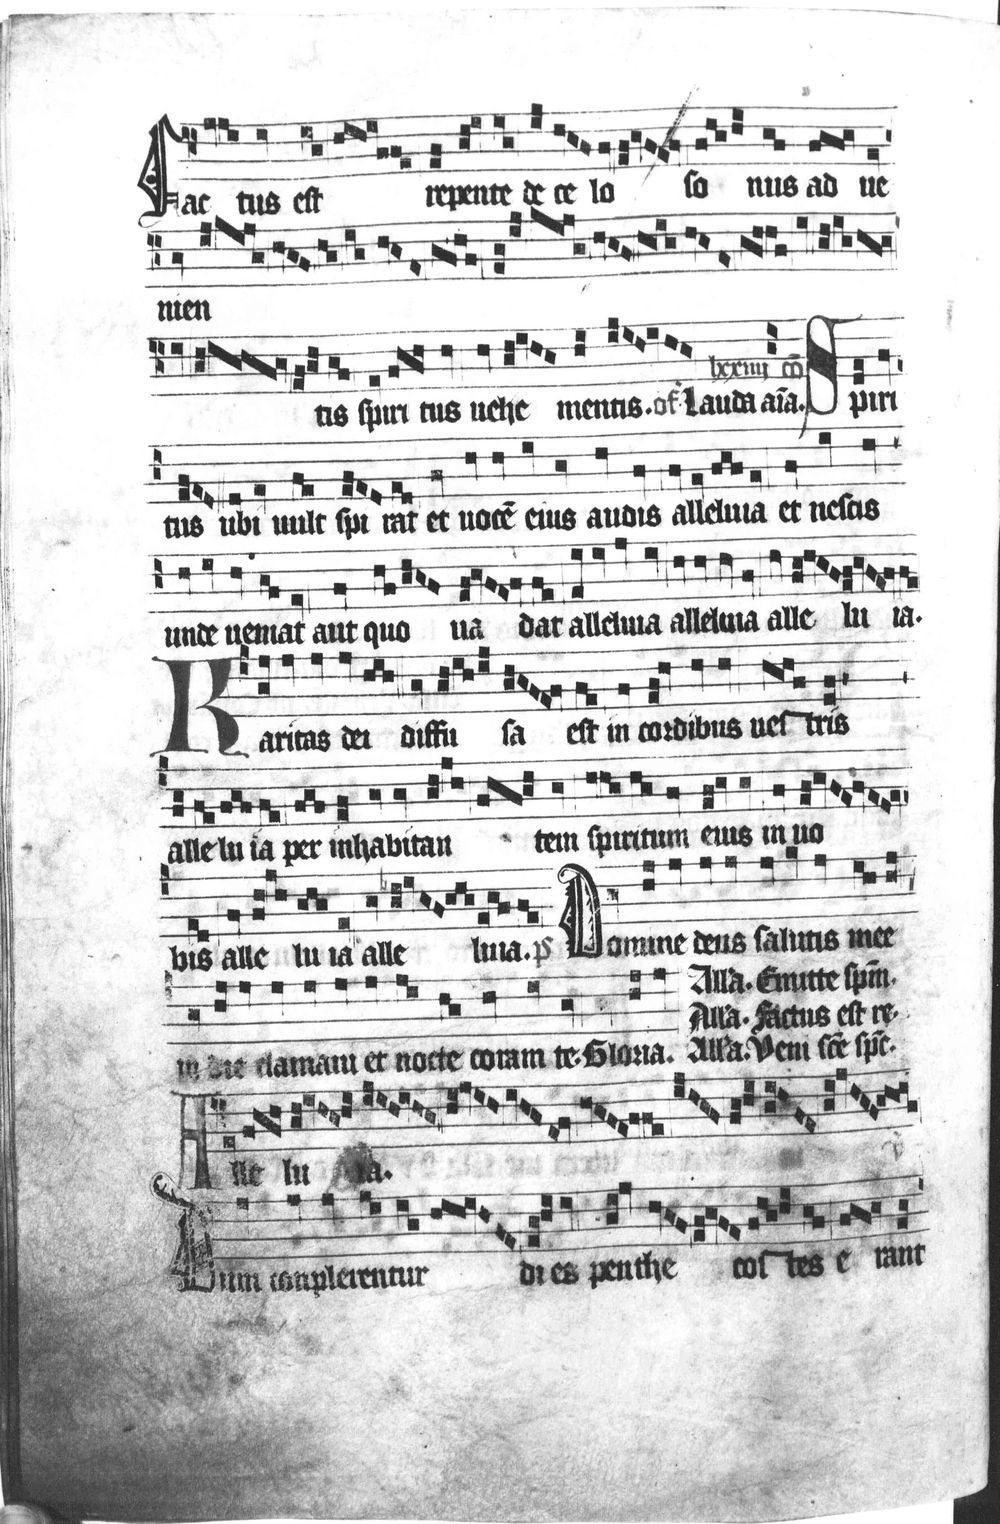 Fac tus est repente de ce lo so nus ad ue
nien
lxxiiij cō
tis spiri tus uehe mentis. of Lauda aīa. Spiri
tus ubi uult spi rat et uocē eius audis alleluia et nescis
unde ueniat aut quo ua dat alleluia alleluia alle lu ia.
Karitas dei diffu sa est in cordibus ues tris
alle lu ia per inhabitan tem spiritum eius in uo
bis alle lu ia alle luia. ps Domine deus salutis mee
Alla. Emitte spm.
Alla. Factus est re.
in die clamaui et nocte coram te. Gloria. Alla. Veni sce spc.
Alle lu ia.
Dum conplerentur di es penthe cos tes e rant